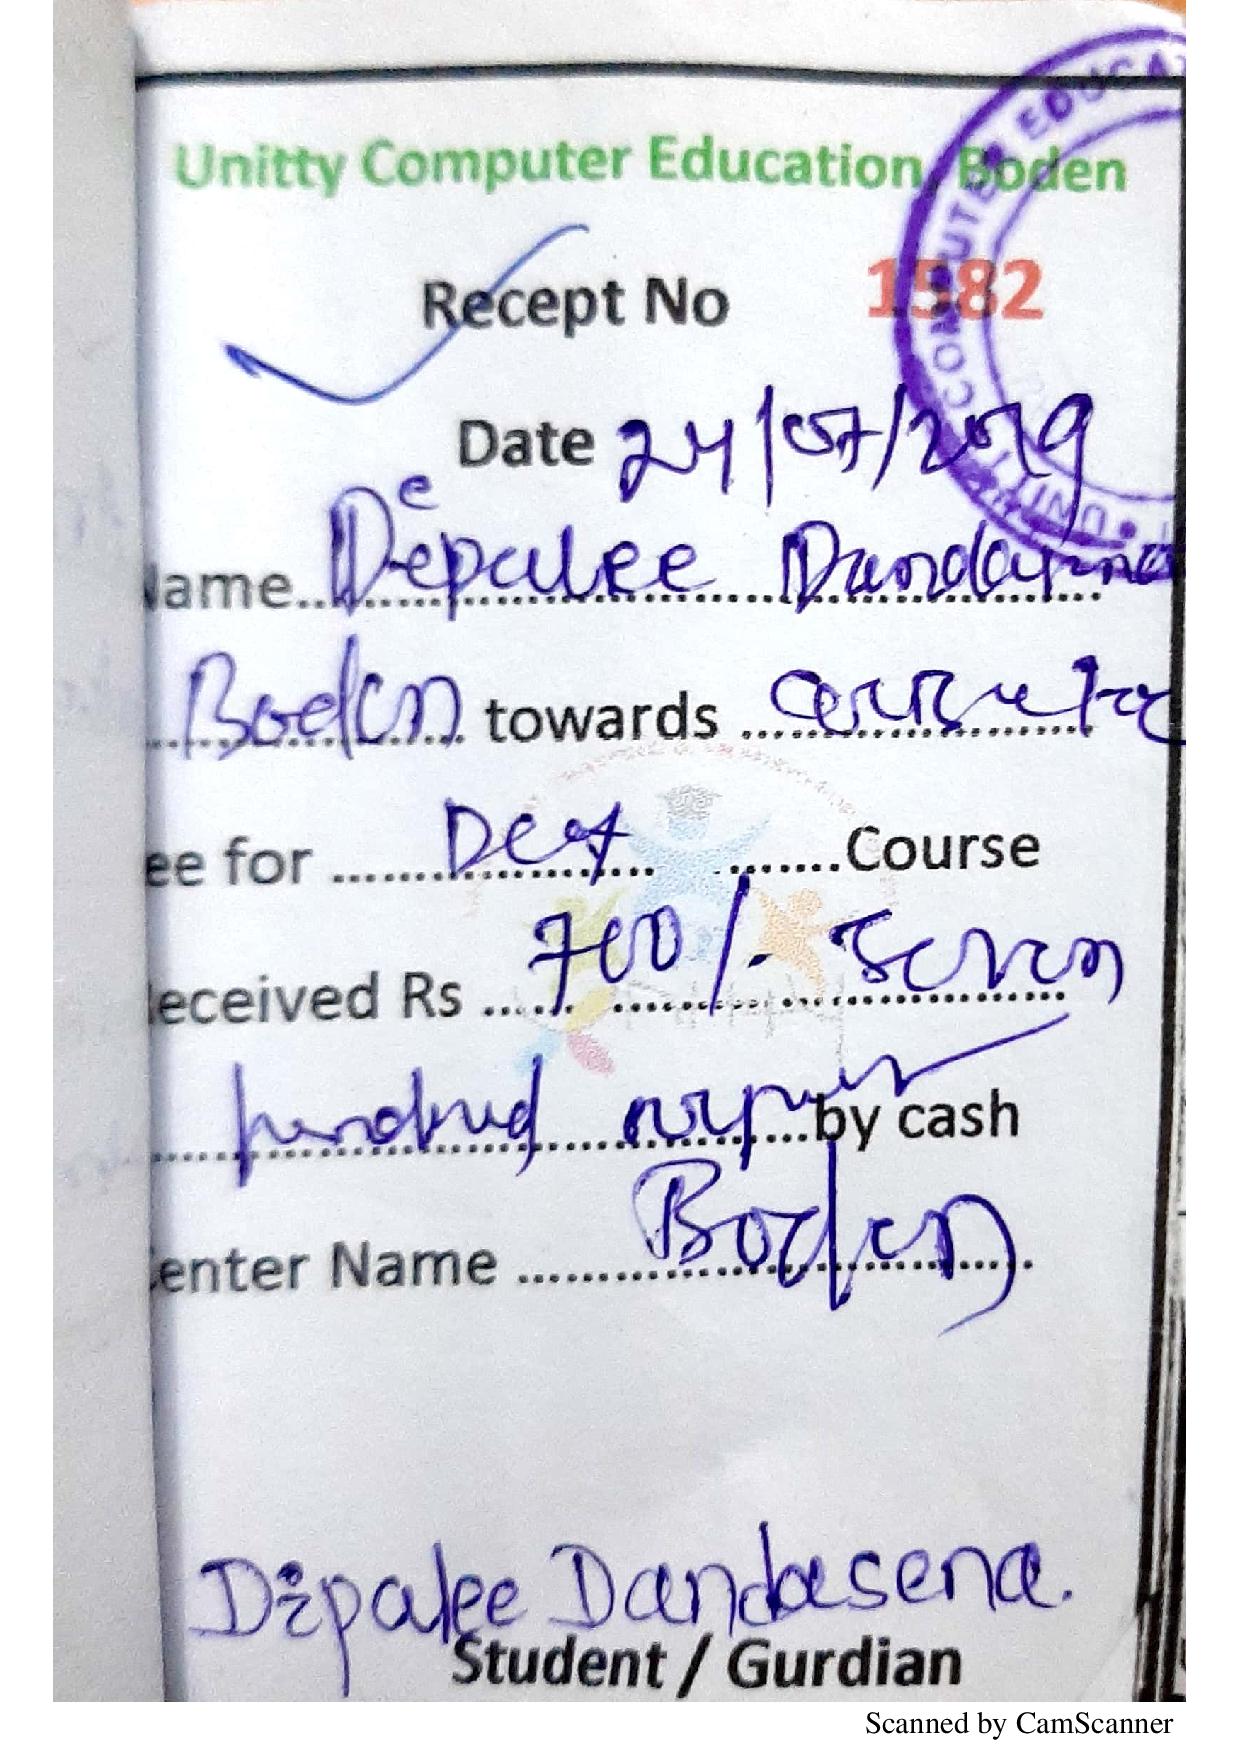 Unitty Computer Education, Boden
Recept No 1582
Date 24/07/2019
ame.. Dipalee Dandasena
Boden towards
ee for Course
eceived Rs 700/- Seven
hundred rupees by cash
enter Name Boden
Dipalee Dandasena.
Student / Gurdian
COMPUTER EDUCAT
UNITTY
Scanned by CamScanner